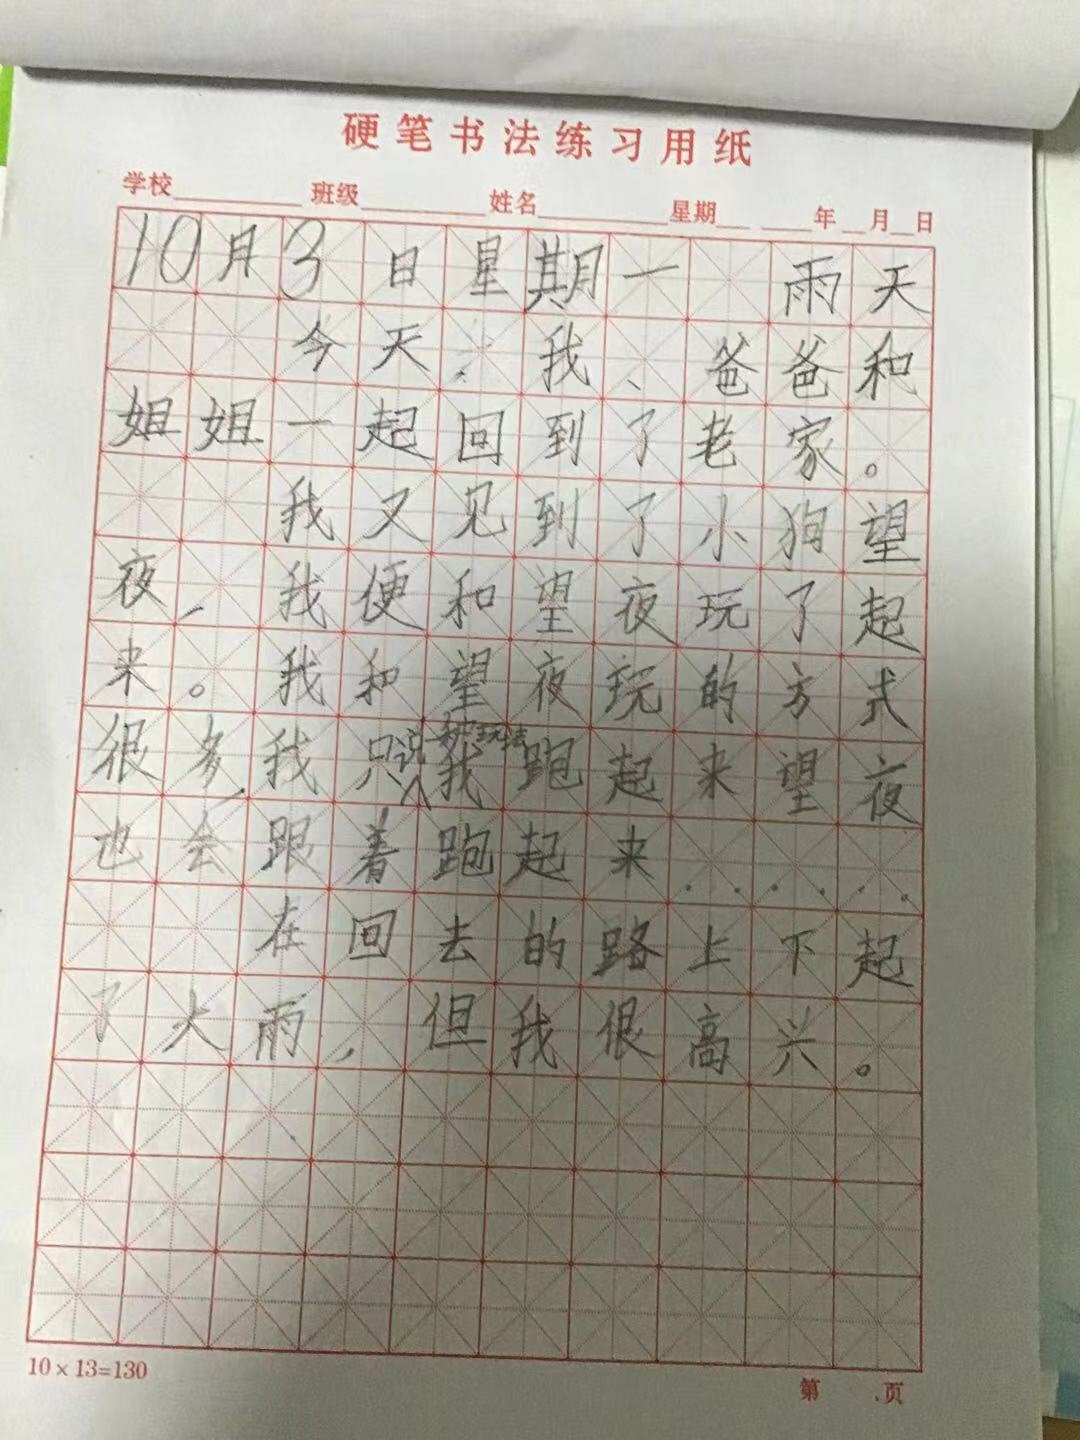 硬笔书法练习用纸
学校 班级 姓名 星期 年 月 日
10月3日星期一 雨天
今天,我、爸爸和
姐姐一起回到了老家。
我又见到了小狗望
夜,我便和望夜玩了起
来。我和望夜玩的方式
很多,我只说一种玩法我跑起来望夜
也会跟着跑起来......
在回去的路上下起
了大雨,但我很高兴。
10×13=130
第 页